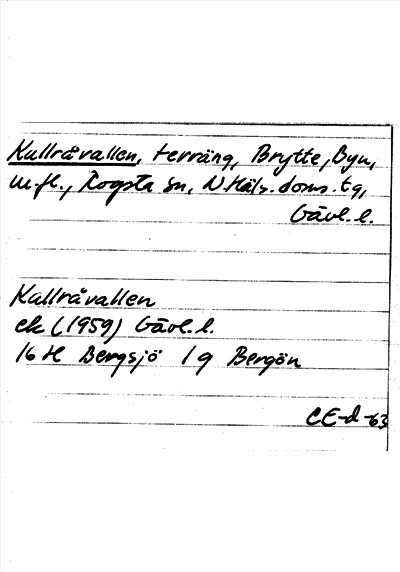 Kallråvallen, terräng, Brytte, Byn,
m.fl., Rogsta sn, N.Häls. doms. tg,
Gävl. l.
Kallråvallen
ek (1959) Gävl. l.
16 H Bergsjö 1 g Bergön
CE-d-63